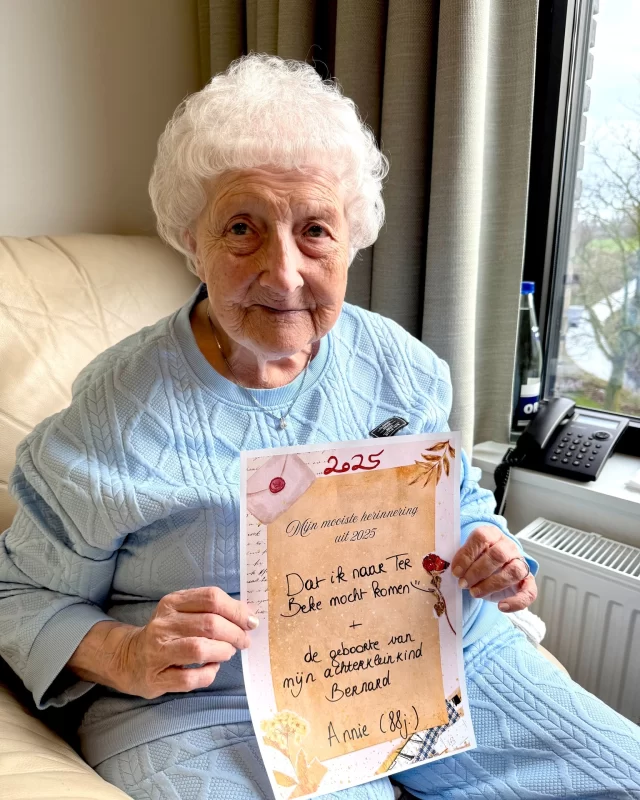 2025
Mijn mooiste herinnering
uit 2025
Dat ik naar Ter
Beke mocht komen
+
de geboorte van
mijn achterkleinkind
Bernard
Annie (88j.)